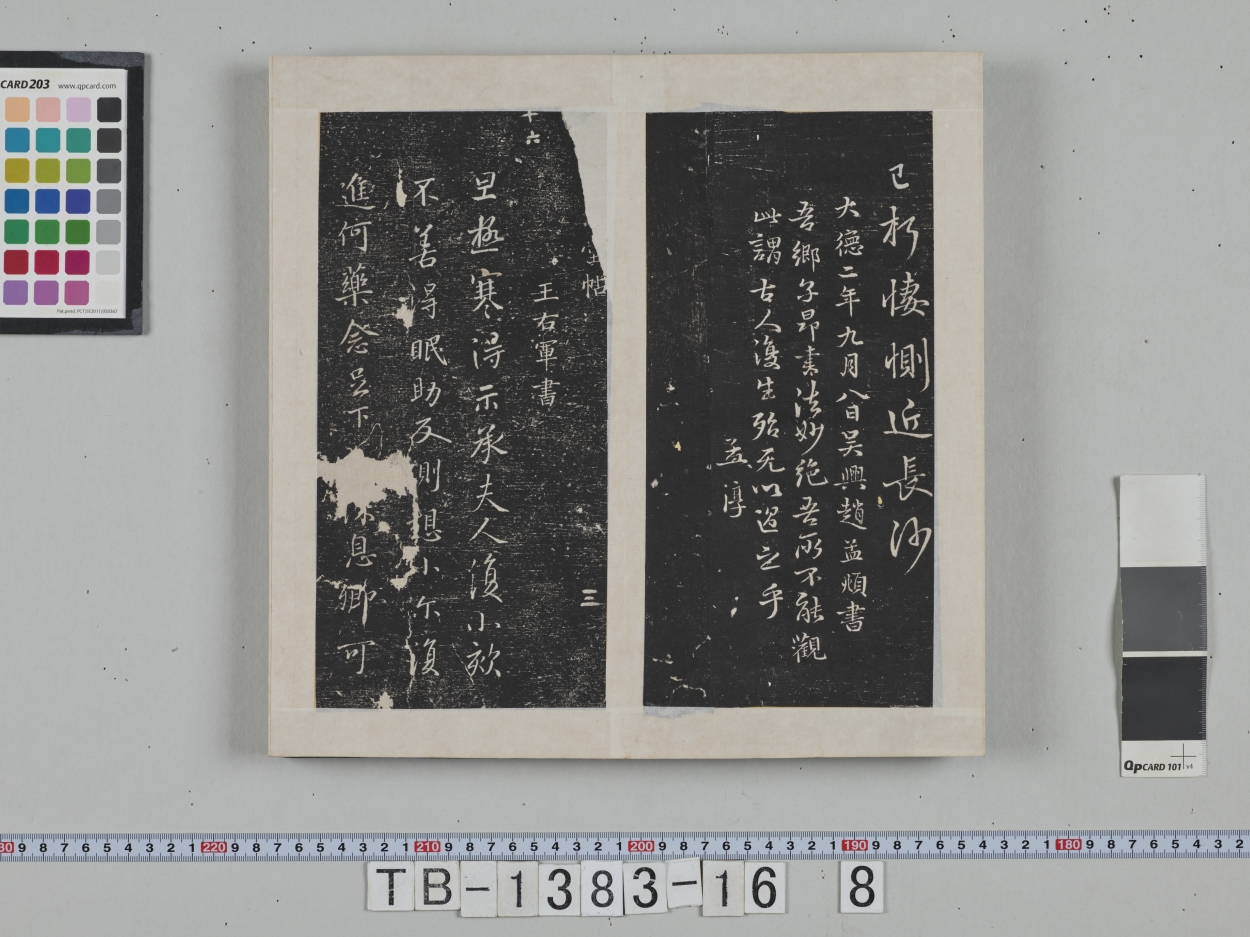 已朽悽惻近長沙
大德二年九月八日吴興趙孟頫書
吾鄉子昂書法妙絶吾所不能觀
此謂古人復生殆无以過之乎
孟淳
帖
三
十六
王右軍書
旦極寒得示承夫人復小欬
不善得眠助反側想小尔復
進何藥念足下
休息卿可
CARD203 www.qpcard.com
QPCARD 101 v4
30 9 8 7 6 5 4 3 2 1 220 9 8 7 6 5 4 3 2 1 210 9 8 7 6 5 4 3 2 1 200 9 8 7 6 5 4 3 2 1 190 9 8 7 6 5 4 3 2 1 180 9 8 7 6 5 4 3 2
TB-1383-16 8